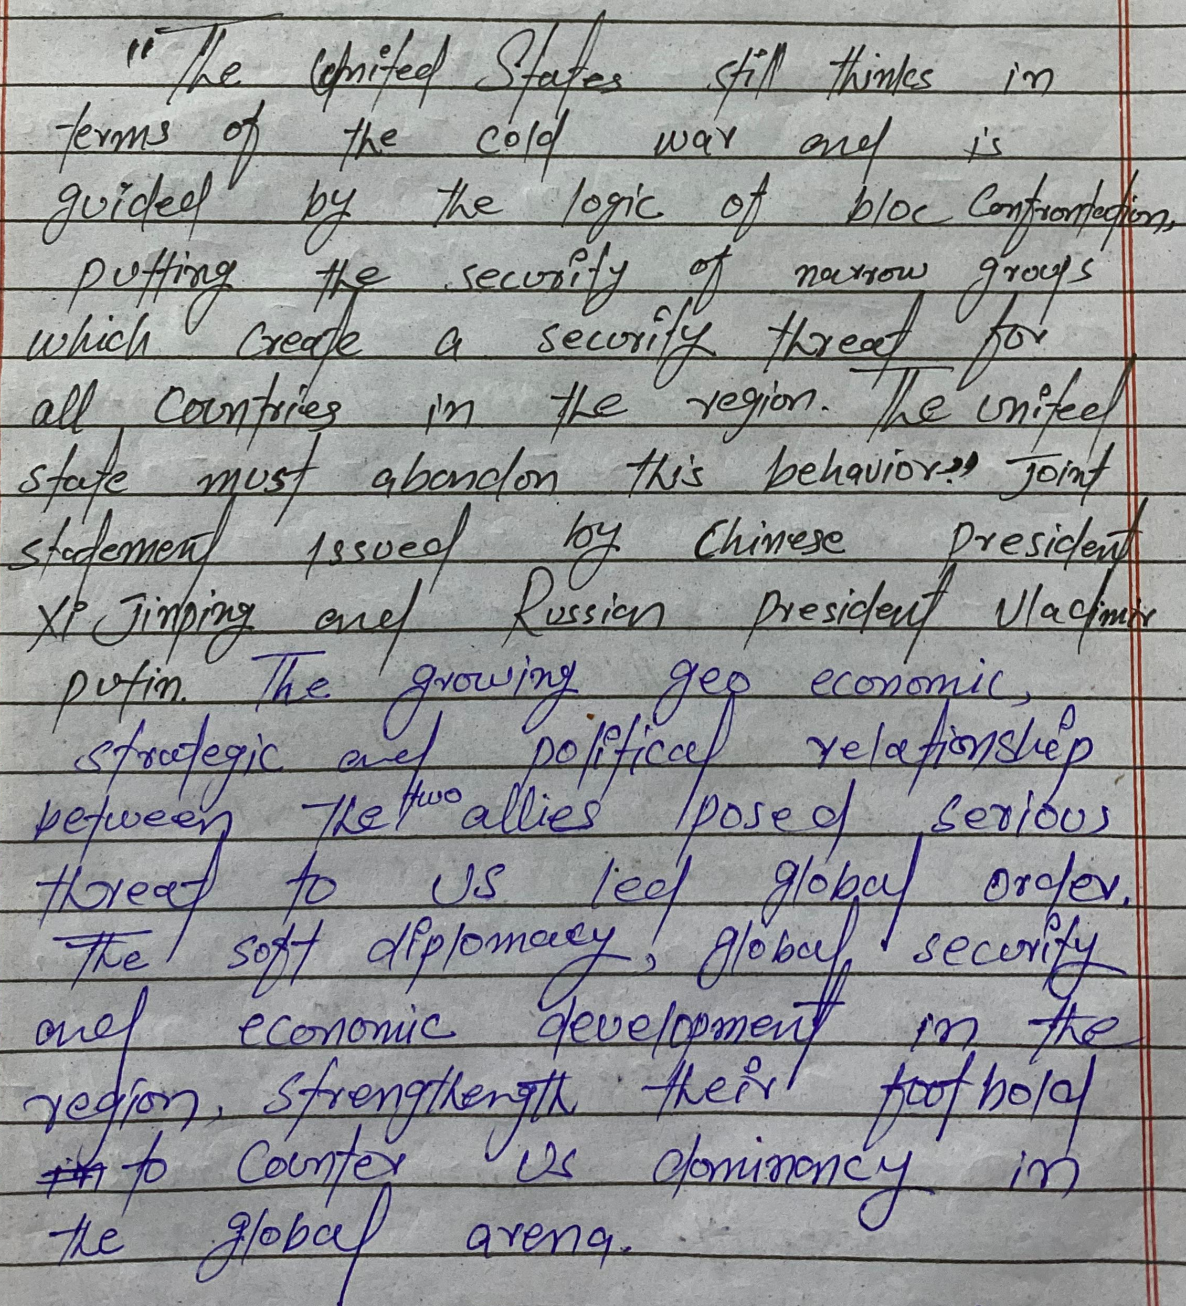 "The United States still thinks in
terms of the cold war and is
guided by the logic of bloc Confrontation,
putting the security of narrow groups
which create a security threat for
all Countries in the region. The united
state must abandon this behavior." Joint
statement issued by Chinese president
Xi Jinping and Russian president Vladimir
putin. The growing geo economic,
strategic and political relationship
between the two allies posed serious
threat to US led global order.
The soft diplomacy, global security
and economic development in the
region, strengthength their foothold
to Counter US dominancy in
the global arena.